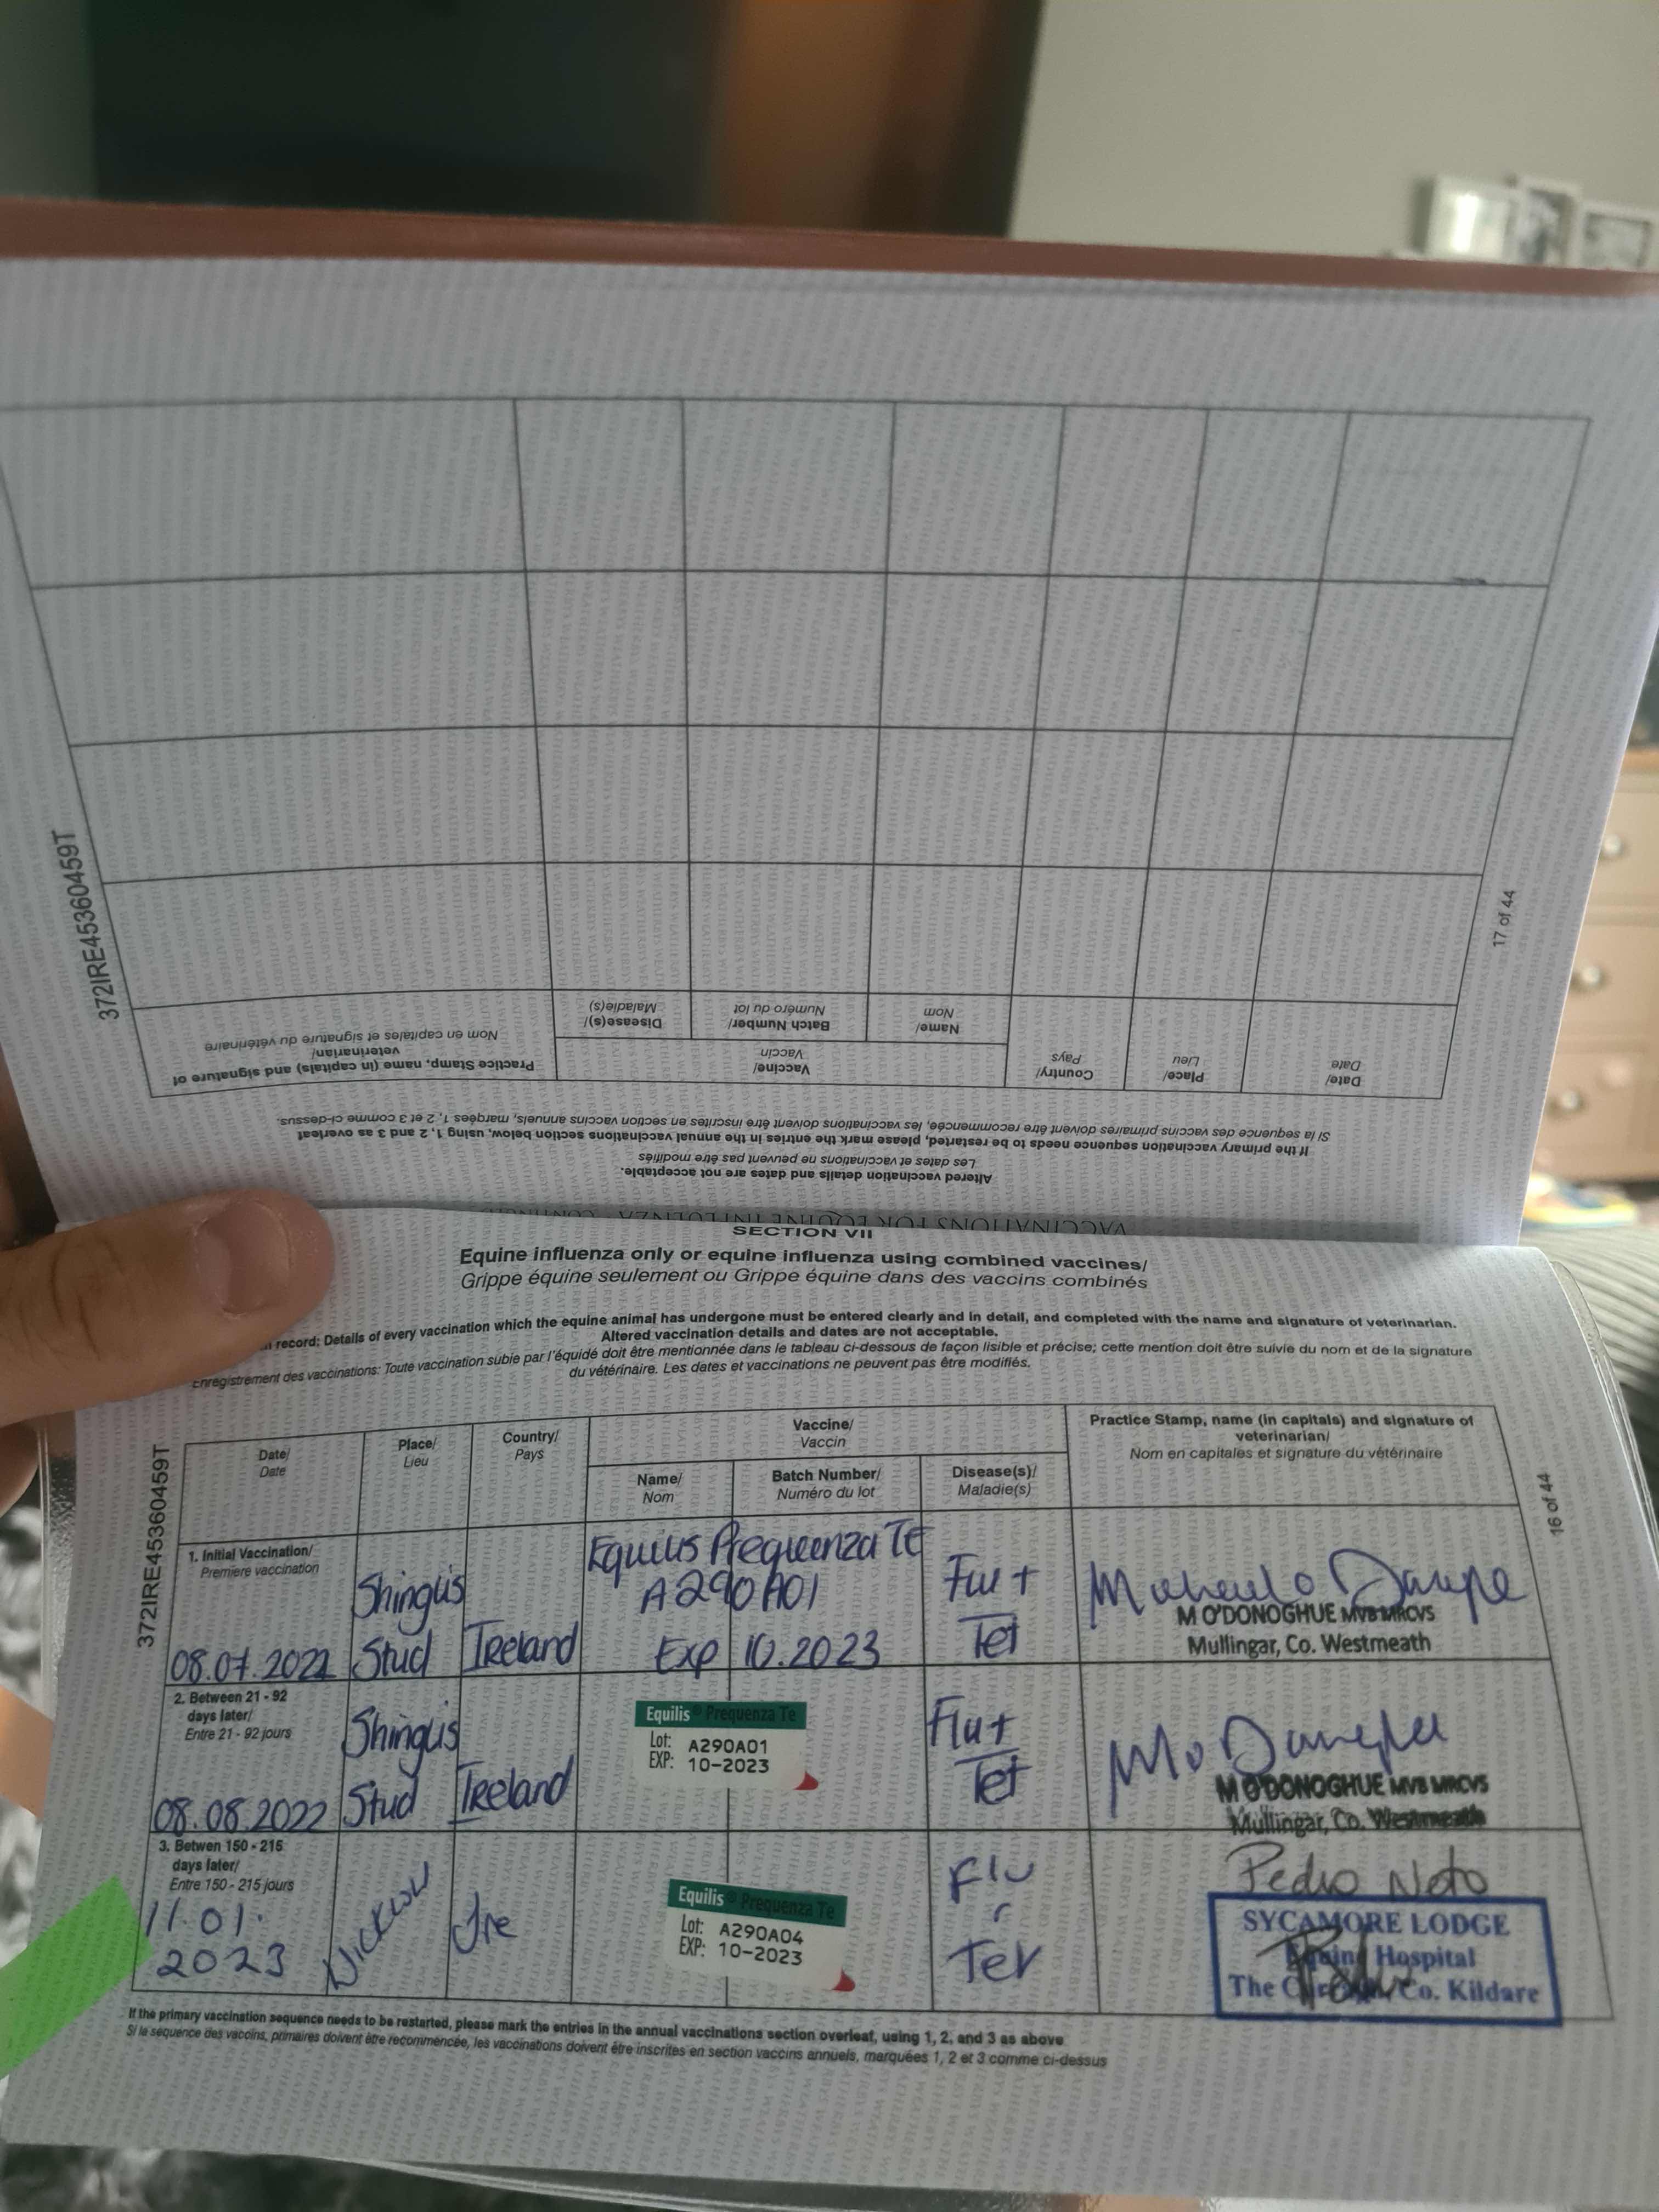 372IRE45360459T
17 of 44
VACCINATIONS FOR EQUINE INFLUENZA
Altered vaccination details and dates are not acceptable.
Les dates et vaccinations ne peuvent pas être modifiés
If the primary vaccination sequence needs to be restarted, please mark the entries in the annual vaccinations section below, using 1, 2 and 3 as overleaf
Si la sequence des vaccins primaires doivent être recommencée, les vaccinations doivent être inscrites en section vaccins annuels, marquées 1, 2 et 3 comme ci-dessus.
Date/
Date
Place/
Lieu
Country/
Pays
Vaccine/
Vaccin
Name/
Nom
Batch Number/
Numéro du lot
Disease(s)/
Maladie(s)
Practice Stamp, name (in capitals) and signature of
veterinarian/
Nom en capitales et signature du vétérinaire
SECTION VII
Equine influenza only or equine influenza using combined vaccines/
Grippe équine seulement ou Grippe équine dans des vaccins combinés
record: Details of every vaccination which the equine animal has undergone must be entered clearly and in detail, and completed with the name and signature of veterinarian.
Altered vaccination details and dates are not acceptable.
Enregistrement des vaccinations: Toute vaccination subie par l'équidé doit être mentionnée dans le tableau ci-dessous de façon lisible et précise; cette mention doit être suivie du nom et de la signature
du vétérinaire. Les dates et vaccinations ne peuvent pas être modifiés.
372IRE45360459T
16 of 44
Date/
Date
Place/
Lieu
Country/
Pays
Vaccine/
Vaccin
Name/
Nom
Batch Number/
Numéro du lot
Disease(s)/
Maladie(s)
Practice Stamp, name (in capitals) and signature of
veterinarian/
Nom en capitales et signature du vétérinaire
1. Initial Vaccination/
Premiere vaccination
08.07.2022
Shinglis
Stud
Ireland
Equilis Prequenza Te
A290A01
Exp 10.2023
Flu +
Tet
M O'DONOGHUE MVB MRCVS
Mullingar, Co. Westmeath
2. Between 21 - 92
days later/
Entre 21 - 92 jours
08.08.2022
Shinglis
Stud
Ireland
Equilis Prequenza Te
Lot: A290A01
EXP: 10-2023
Flu +
Tet
M O'DONOGHUE MVB MRCVS
Mullingar, Co. Westmeath
3. Betwen 150 - 215
days later/
Entre 150 - 215 jours
11.01.
2023
Wicklow
Ire
Equilis Prequenza Te
Lot: A290A04
EXP: 10-2023
Flu
Tet
Pedro Noto
SYCAMORE LODGE
Equine Hospital
The Curragh, Co. Kildare
If the primary vaccination sequence needs to be restarted, please mark the entries in the annual vaccinations section overleaf, using 1, 2, and 3 as above
Si la séquence des vaccins, primaires doivent être recommencée, les vaccinations doivent être inscrites en section vaccins annuels, marquées 1, 2 et 3 comme ci-dessus